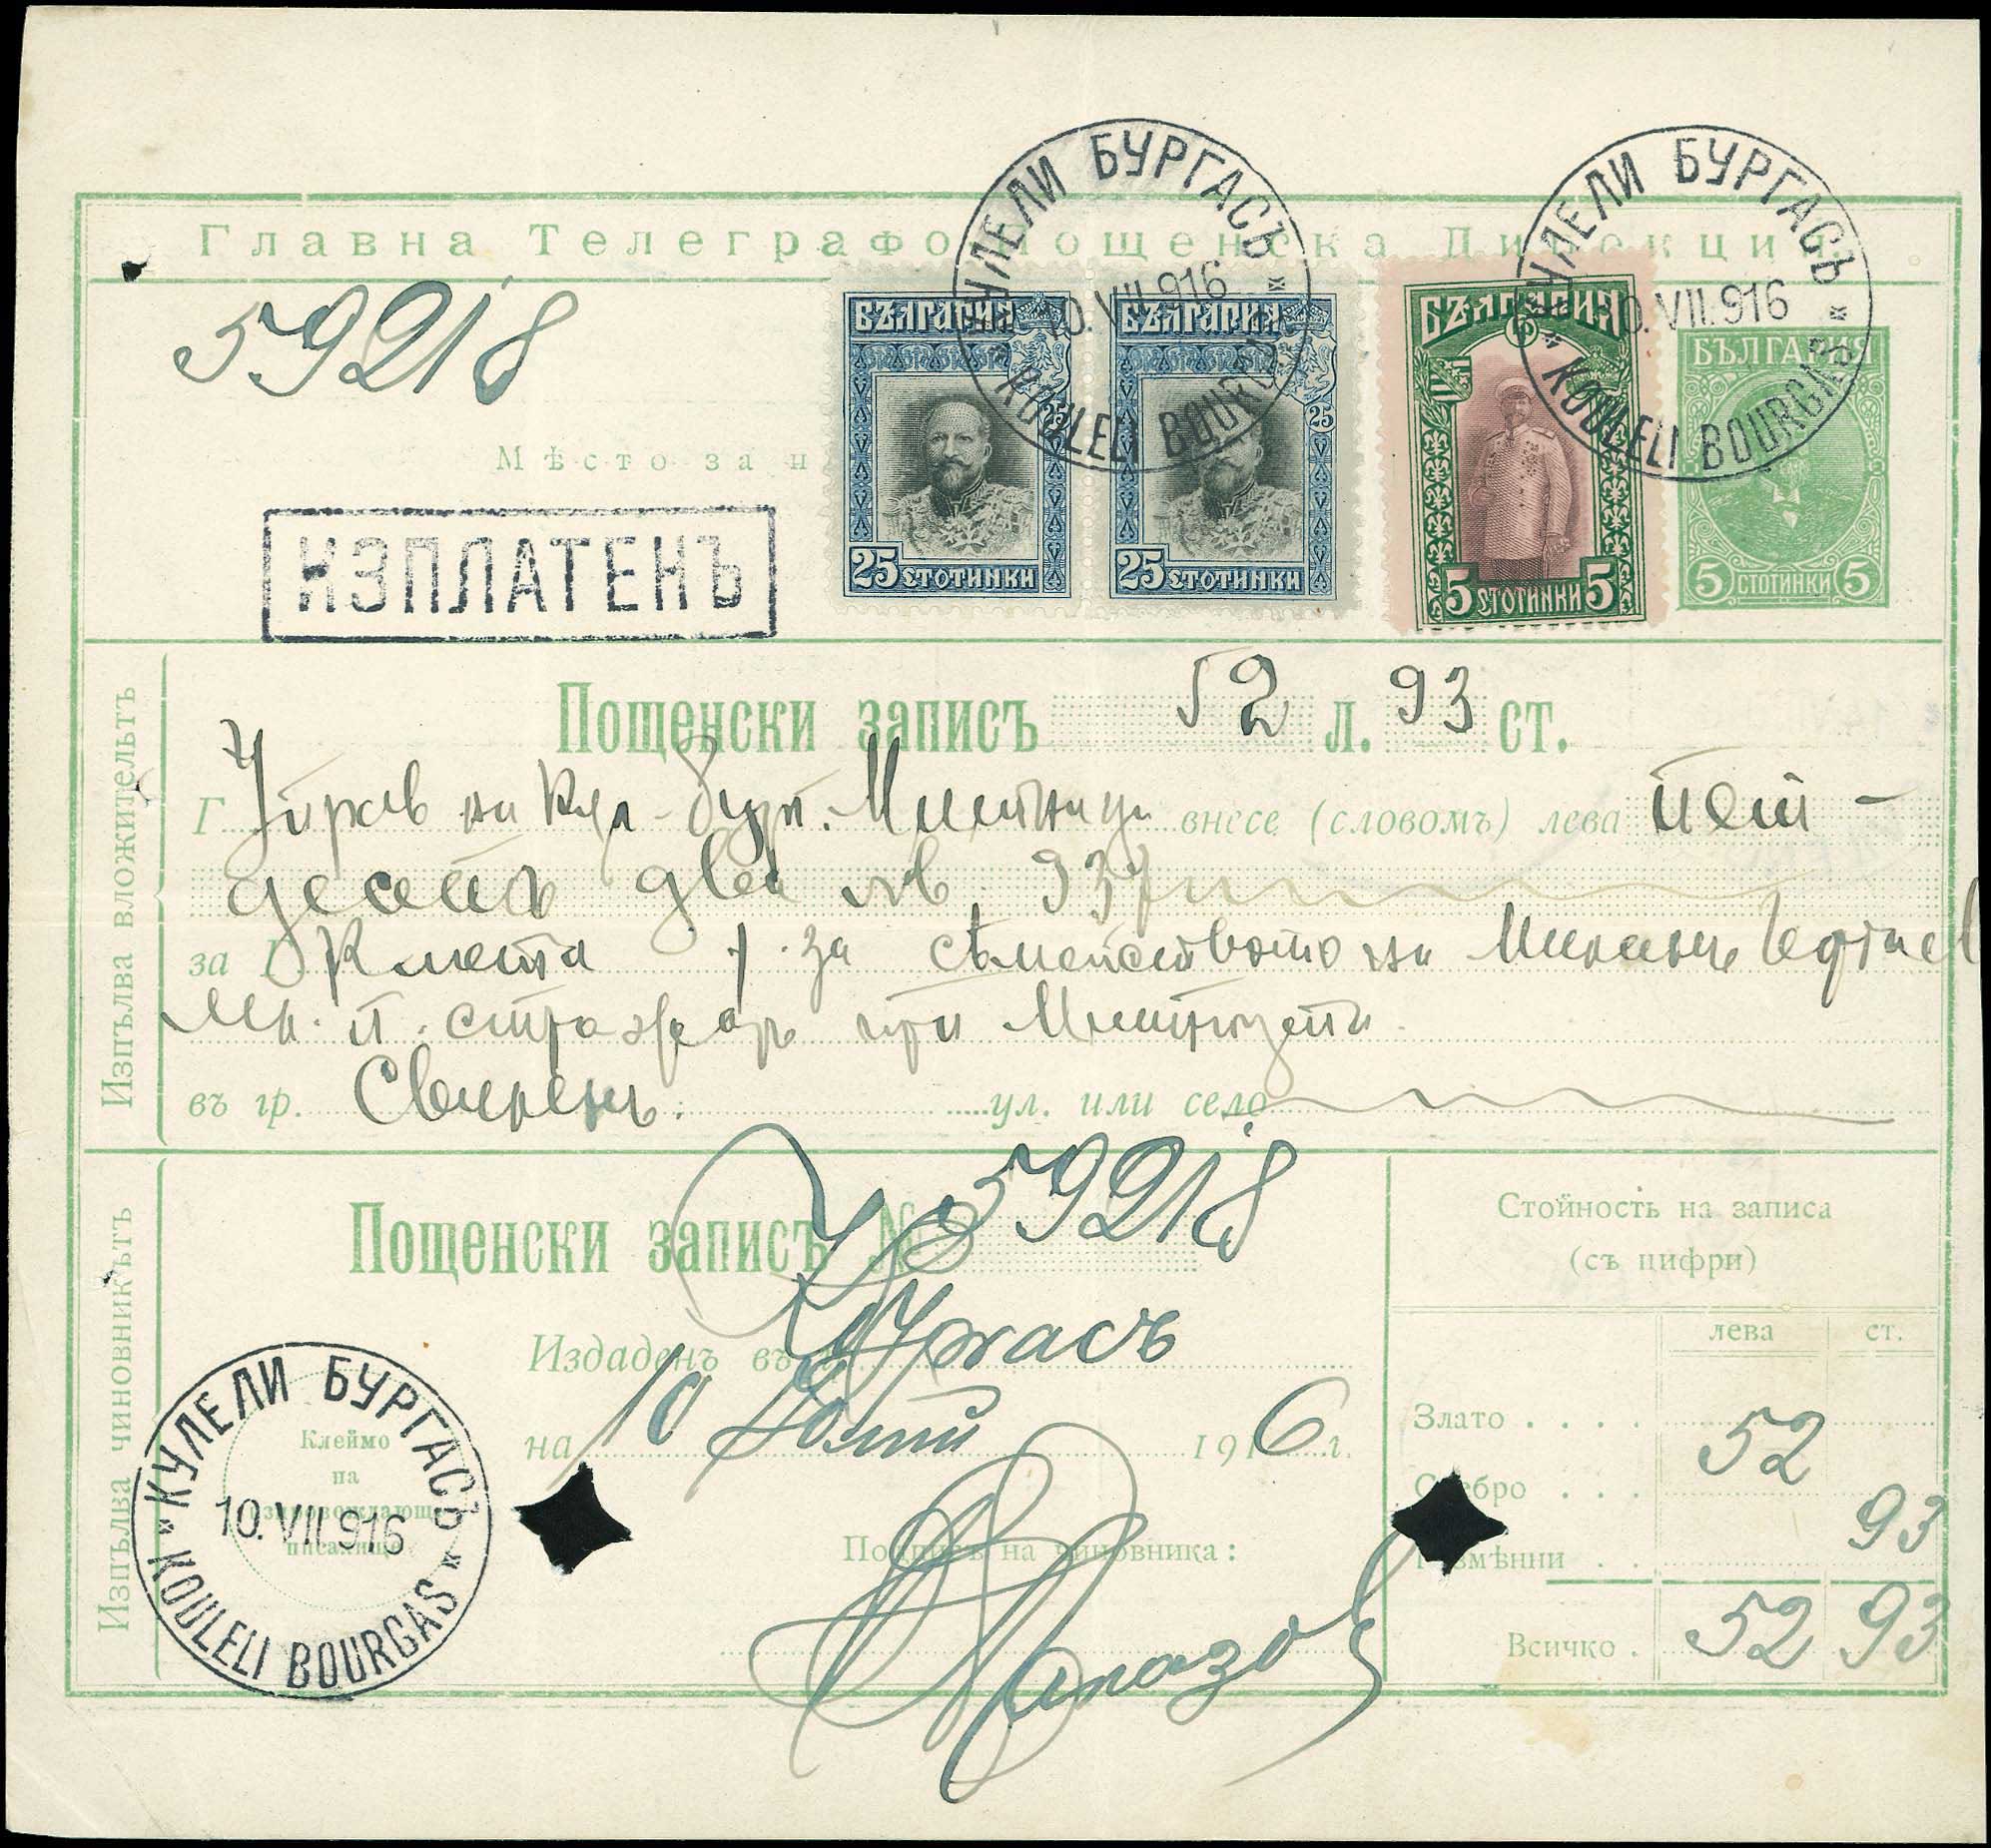 Главна Телеграфо Пощенска Дирекция
КУЛЕЛИ БУРГАСЪ
10.VII.916
KOULELI BOURGAS
КУЛЕЛИ БУРГАСЪ
10.VII.916
KOULELI BOURGAS
59218
БЪЛГАРИЯ
25
25 СТОТИНКИ
БЪЛГАРИЯ
25
25 СТОТИНКИ
БЪЛГАРИЯ
5
5 СТОТИНКИ 5
БЪЛГАРИЯ
5 СТОТИНКИ 5
Мѣсто за н
ИЗПЛАТЕНЪ
Изпълва вложительтъ
Пощенски записъ 52 л. 93 ст.
Г Управ на Кул-бург. Митница внесе (словомъ) лева пет-
десетъ два лв 93
за Г Кмета за сѣмейството на
стражаръ при Митницата
въ гр. Свиленъ ул. или село
Изпълва чиновникътъ
Пощенски записъ № 59218
Издаденъ въ
на 10 Юлий 1916 г.
Подписъ на чиновника:
КУЛЕЛИ БУРГАСЪ
10.VII.916
KOULELI BOURGAS
Клеймо
на
писалище
Стойность на записа
(съ цифри)
лева ст.
Злато . . . . 52
Сребро . . .
Размѣнни . . 93
Всичко . 52 93